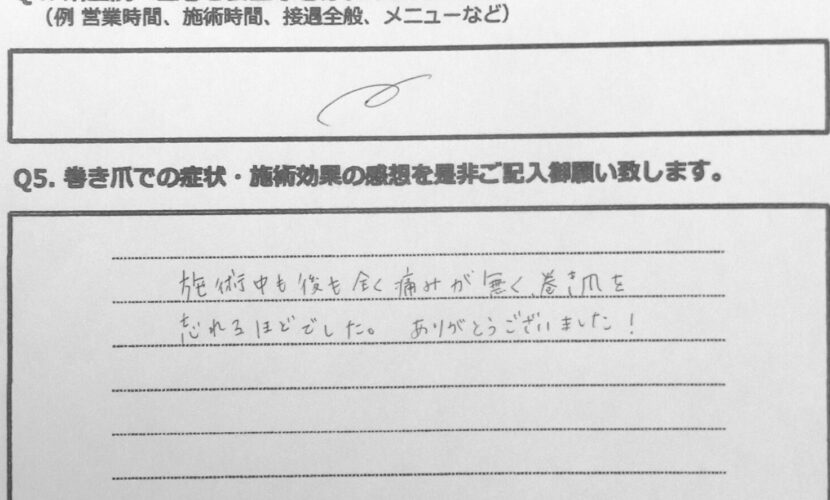 （例 営業時間、施術時間、接遇全般、メニューなど）
Q5. 巻き爪での症状・施術効果の感想を是非ご記入御願い致します。
施術中も後も全く痛みが無く、巻き爪を
忘れるほどでした。 ありがとうございました！